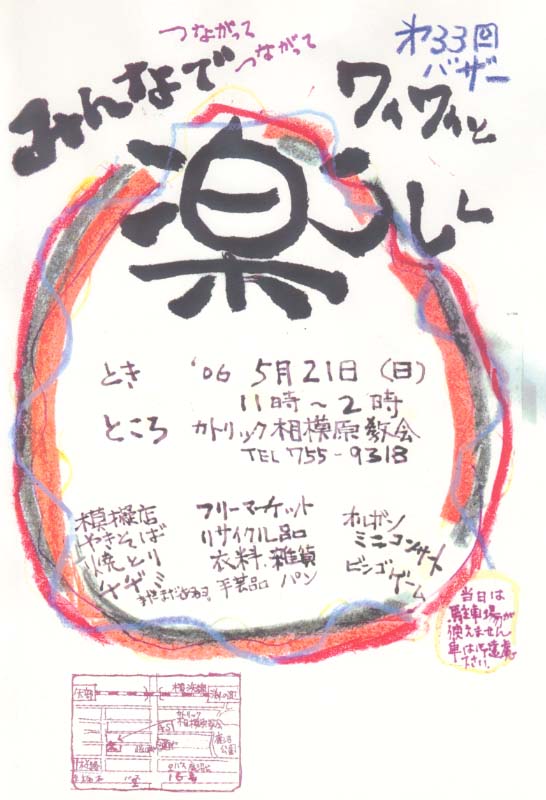 つながって
つながって
第33回
バザー
みんなで
ワイワイと
楽しく
とき '06 5月21日(日)
11時~2時
ところ カトリック相模原教会
TEL 755-9318
模擬店
やきそば
焼とり
チヂミ
フリーマーケット
リサイクル品
衣料、雑貨
手芸品 パン
オルガン
ミニコンサート
ビンゴゲーム
当日は
駐車場が
使えません
車はご遠慮
下さい。
横浜線
カトリック
相模原教会
公園
16号